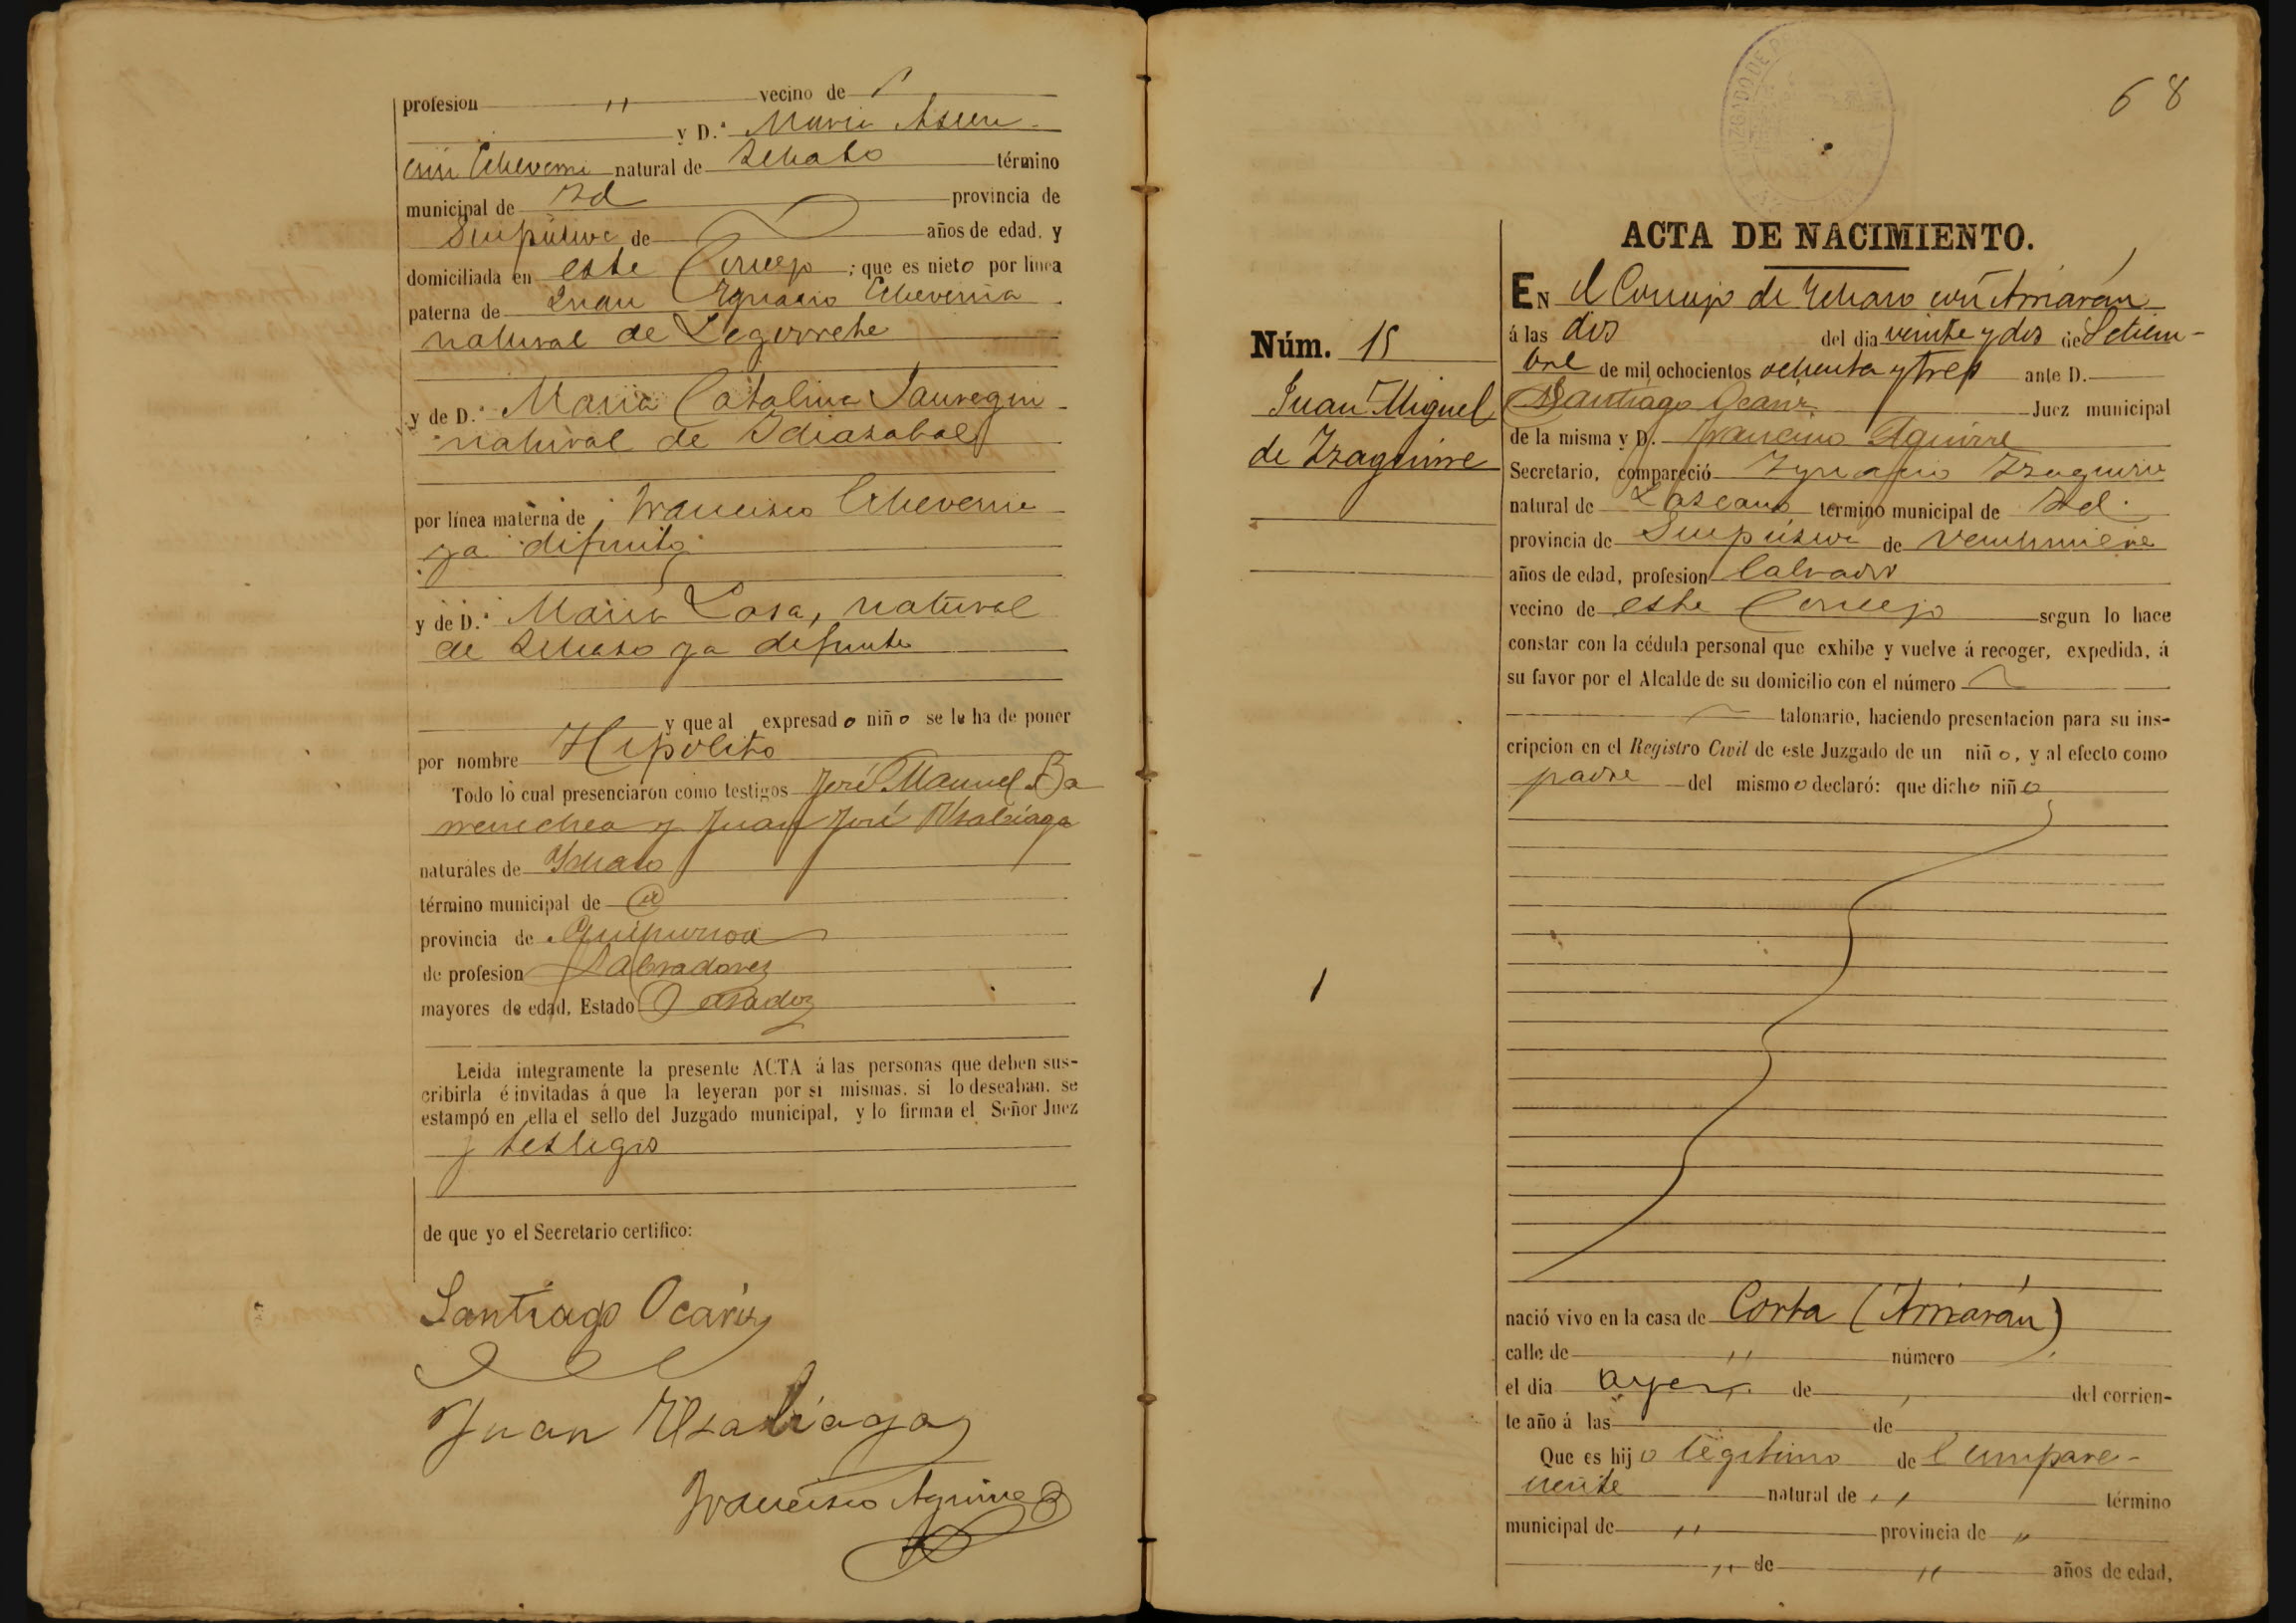 profesion " vecino de
y D.ª Maria Asun-
cion Echeverria natural de Ichaso término
municipal de Id provincia de
Guipúzcoa de años de edad, y
domiciliada en este Concejo ; que es nieto por linea
paterna de Juan Ygnacio Echeverria
natural de Legorreta
y de D.ª Maria Catalina Jauregui
natural de Idiazabal
por línea materna de Francisco Echeverria
ya difunto
y de D.ª Maria Lasa, natural
de Ichaso ya difunta
y que al expresado niño se le ha de poner
por nombre Hipolito
Todo lo cual presenciaron como testigos José Manuel Ba
rrenechea y Juan José Usabiaga
naturales de Ychaso
término municipal de id
provincia de Guipuzcoa
de profesion Labradores
mayores de edad, Estado Casados
Leida integramente la presente ACTA á las personas que deben sus-
cribirla é invitadas á que la leyeran por si mismas, si lo deseaban, se
estampó en ella el sello del Juzgado municipal, y lo firman el Señor Juez
y testigos
de que yo el Secretario certifico:
Santiago Ocariz
Juan Usabiaga
Francisco Aguirre
68
ACTA DE NACIMIENTO.
EN el Concejo de Ychaso con Arriarán
Núm. 15
á las dos del dia veinte y dos de Setiem-
bre de mil ochocientos ochenta y tres ante D.
Juan Miguel
Santiago Ocariz Juez municipal
de la misma y D. Francisco Aguirre
de Yzaguirre
Secretario, compareció Ygnacio Yzaguirre
natural de Lazcano término municipal de Id.
provincia de Guipúzcoa de veintinueve
años de edad, profesion labrador
vecino de este Concejo segun lo hace
constar con la cédula personal que exhibe y vuelve á recoger, expedida, á
su favor por el Alcalde de su domicilio con el número
talonario, haciendo presentacion para su ins-
cripcion en el Registro Civil de este Juzgado de un niño, y al efecto como
padre del mismo declaró: que dicho niño
nació vivo en la casa de Corta (Arriarán)
calle de " número
el dia ayer de " del corrien-
te año á las de
Que es hijo legitimo de l compare-
ciente natural de " término
municipal de " provincia de "
" de " años de edad,